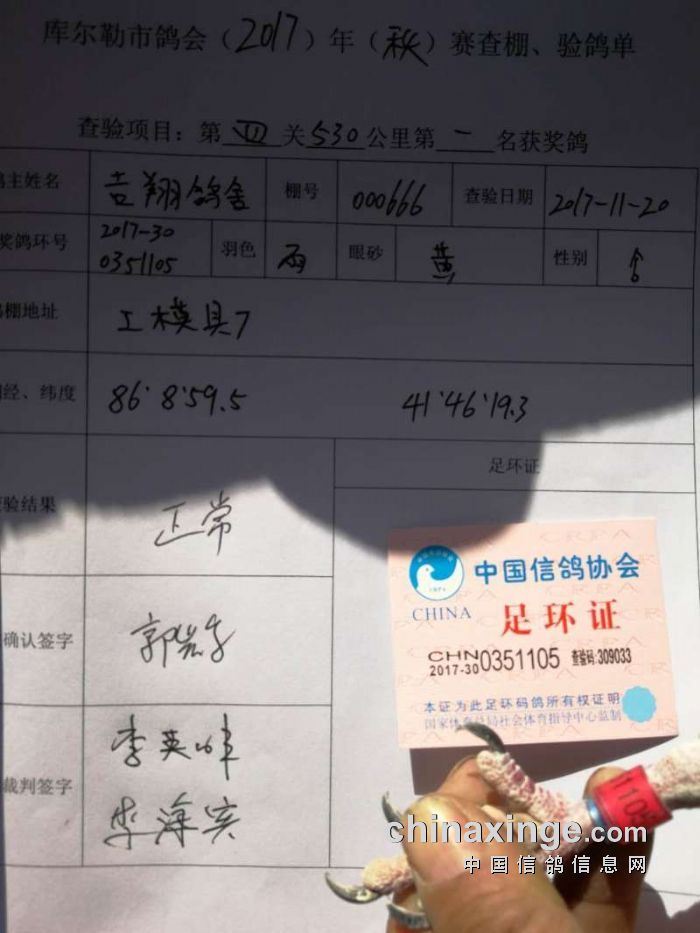 库尔勒市鸽会（2017）年（秋）赛查棚、验鸽单
查验项目：第四关530公里第一名获奖鸽
鸽主姓名 吉翔鸽舍 棚号 000666 查验日期 2017-11-20
奖鸽环号 2017-30 0351105 羽色 雨 眼砂 黄 性别 ♂
鸽棚地址 工模具7
经、纬度 86°8'59.5 41°46'19.3
验结果 正常 足环证
确认签字
裁判签字 李英 李海
中国信鸽协会
CHINA
足环证
CHN
2017-30 0351105 查验码:309033
本证为此足环码鸽所有权证明
国家体育总局社会体育指导中心监制
1105
chinaxinge.com
中国信鸽信息网